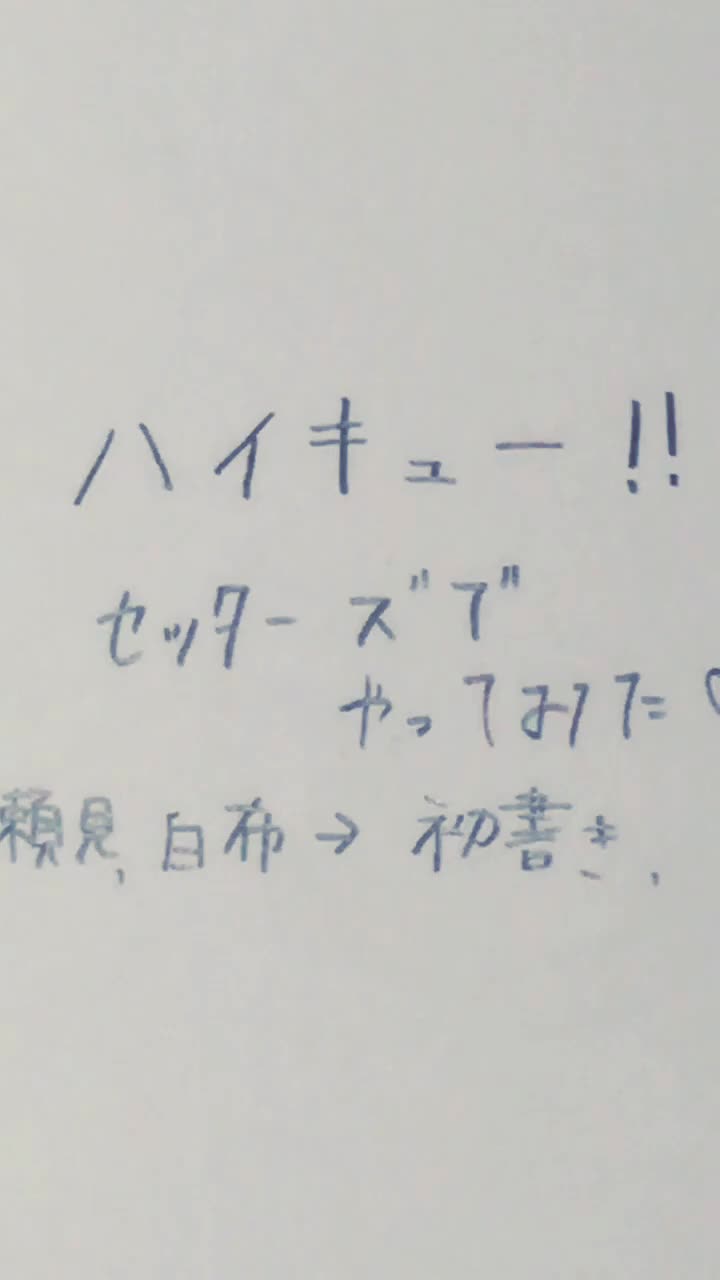 ハイキュー!!
セッターズで
やってみた♡
頼見、白布→初書き、